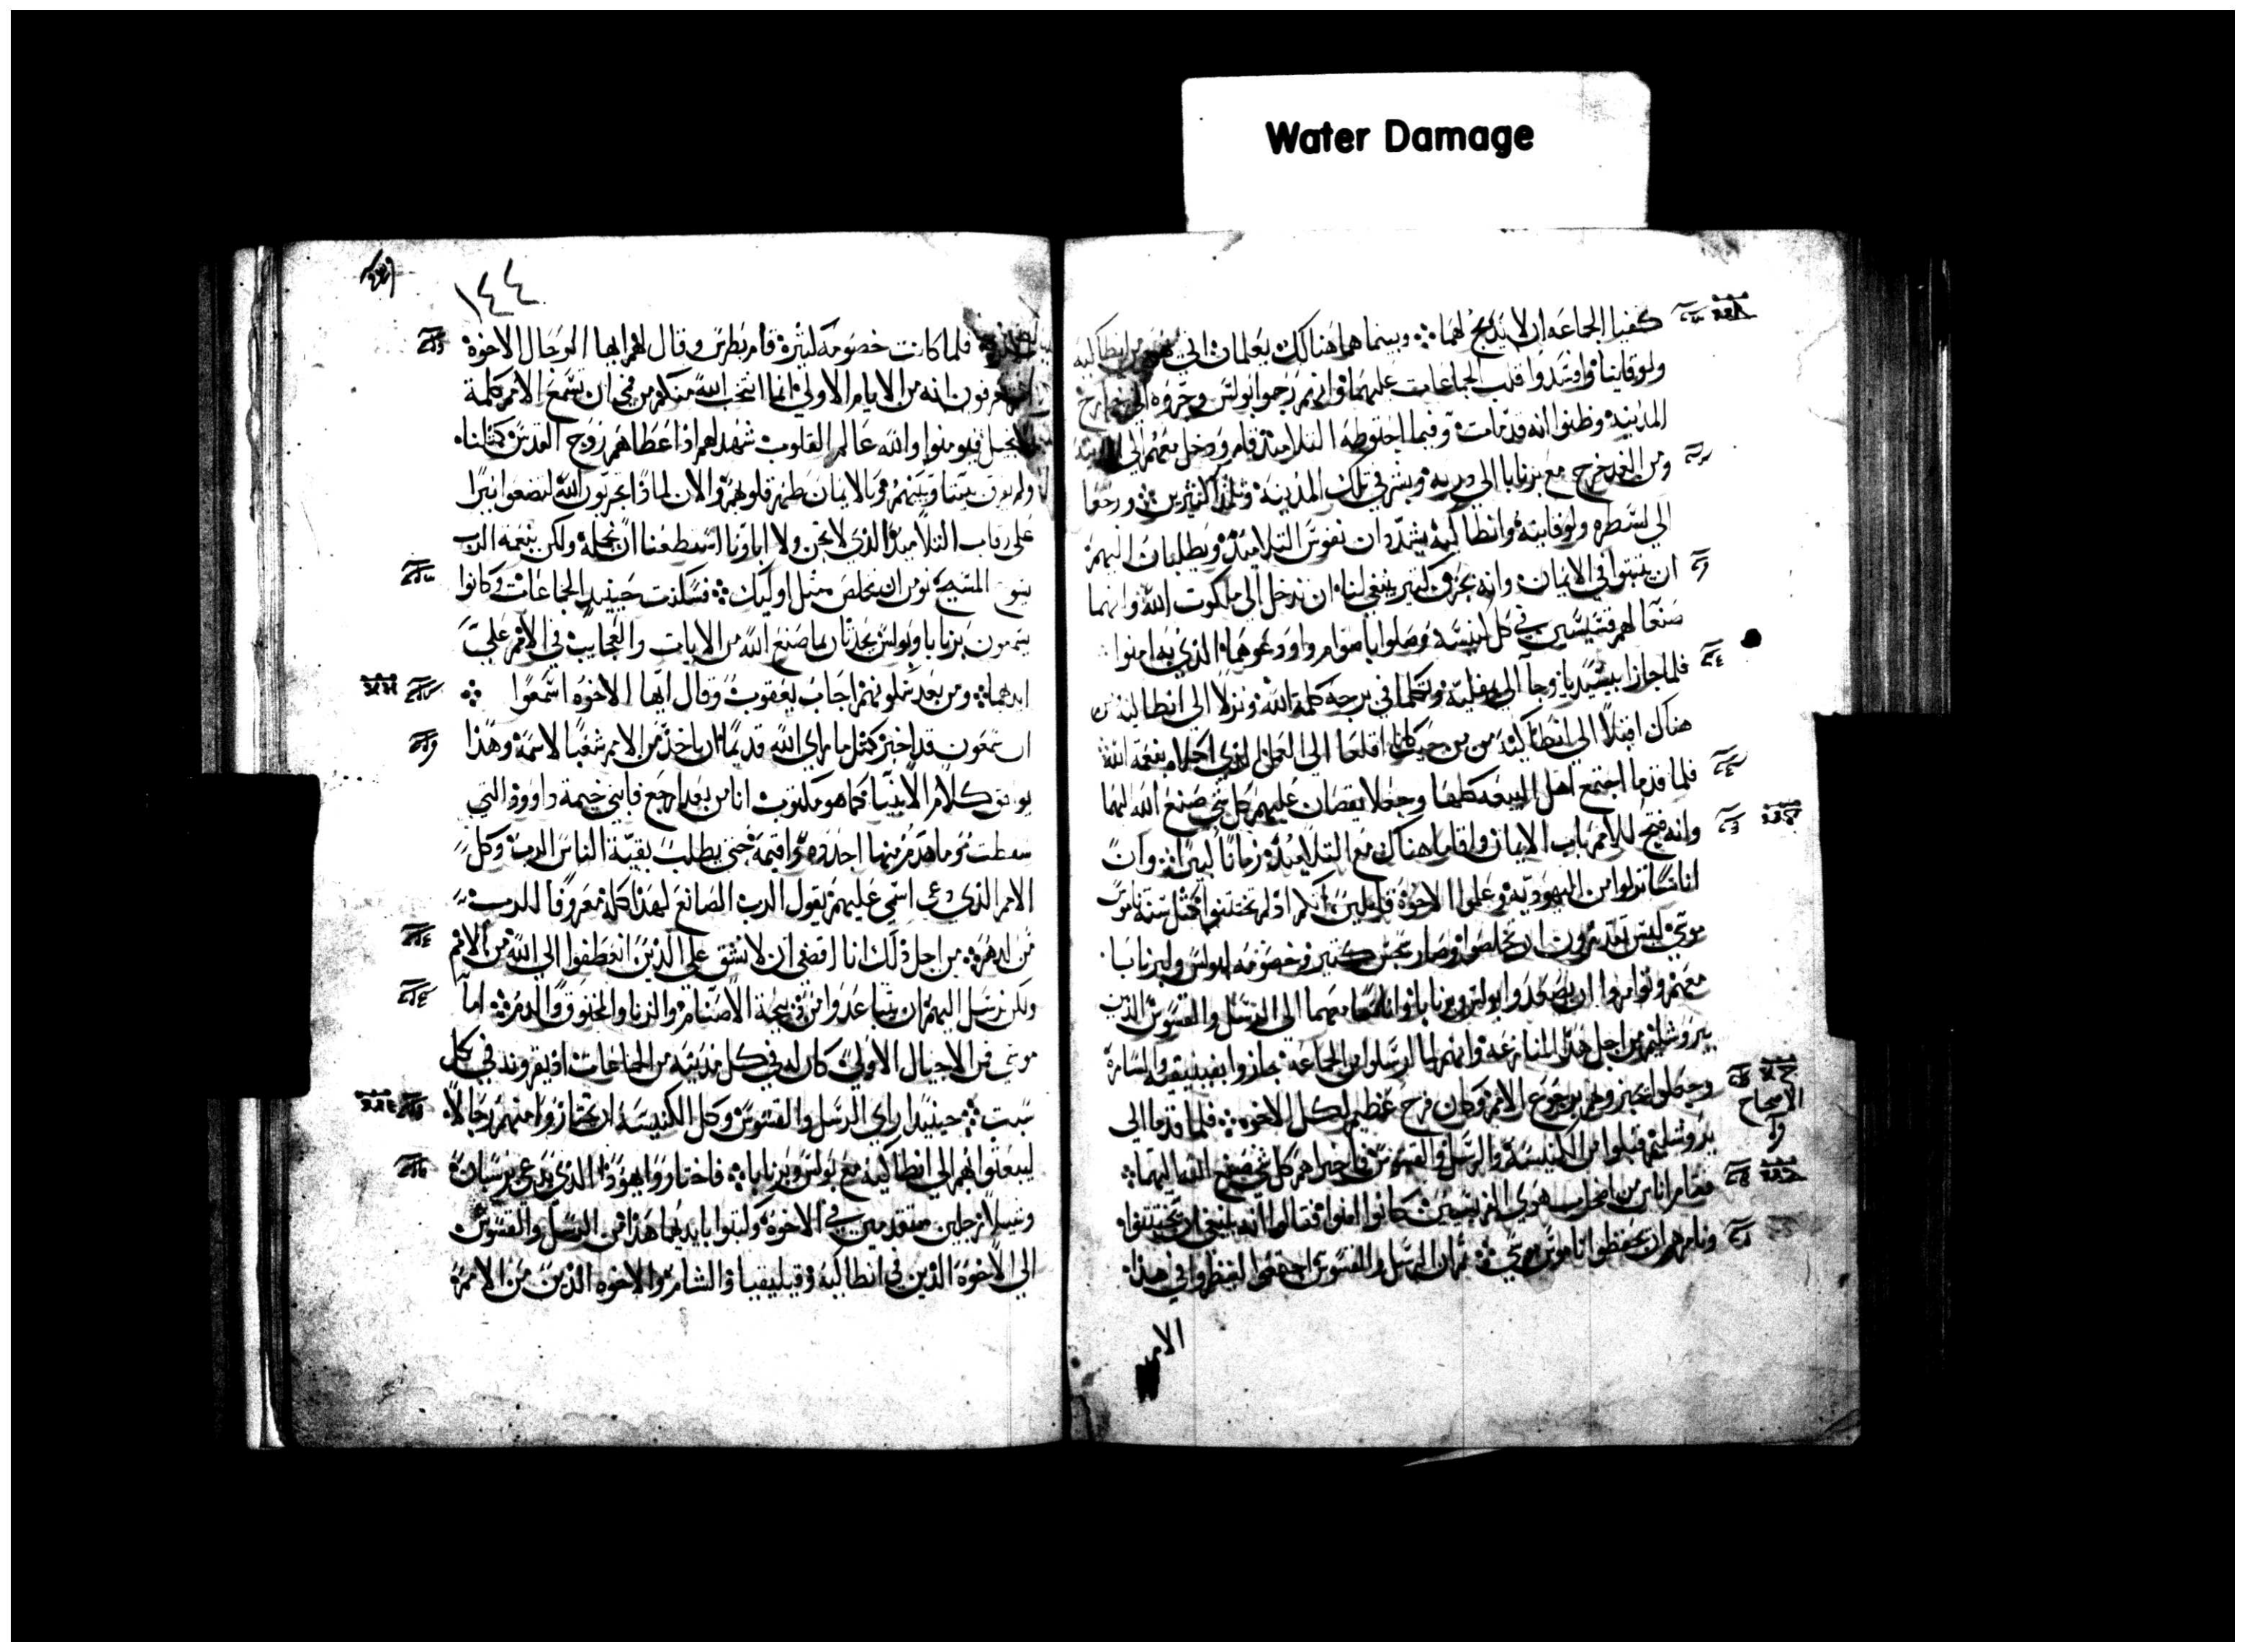 Water Damage
كفيا الجماعه ان لا يذبح لهما ۞ وبينما هما هنالك يعلمان اتي من انطاكيه
ولوقانيا وافسدوا قلب الجماعات عليهما وانهم رجموا بولس وجروه الي خارج
المدينه وظنوا انه قد مات وفيما احتاطوا به التلاميذ قام ودخل معهم الي
ومن الغد خرج مع برنابا الي دربه وبشر في تلك المدينة وتلمذا كثيرين ۞ ورجعا
الي لسطره ولوقانيه وانطاكيه يشددان نفوس التلاميذ ويطلبان اليهم
ان يثبتوا في الايمان وانه بحزن كثير ينبغي لنا ان ندخل الي ملكوت الله وانهما
صنعا لهم قسيسين في كل كنيسه وصلوا باصوام واودعوهما الذي به امنوا
فلما جازا بيسيديا وجاا الي بمفليه وتكلما في برجه كلمة الله ونزلا الي انطاليه من
هناك اقبلا الي انطاكيه من حيث كانا اقلعا الي العمل الذي اكملاه بنعمة الله
فلما قدما اجتمع اهل البيعه كلها وجعلا يقصان عليهم كل شي صنع الله لهما
وانه فتح للامم باب الايمان واقاما هناك مع التلاميذ زمانا كبيرا ۞ وان
اناسا نزلوا من اليهوديه وعلموا الاخوة قايلين انكم اذ لم تختتنوا كمثل سنة ناموس
موسي ليس تقدرون ان تخلصوا وصار سجس كثير وخصومه لبولس ولبرنابا
معهم وتوامروا ان يصعدوا بولس وبرنابا واناسا معهما الي الرسل والقسوس الذين
بيروشليم من اجل هذه المنازعه وانهم لما ارسلوا من الجماعه جازوا بفينيقه والسامرة
وجعلوا يخبروهم برجوع الامم وكان فرح عظيم لكل الاخوه ۞ فلما قدما الي
الاصحاح
يروشليم قبلوا من الكنيسة والرسل والقسوس فاخبراهم كل شي صنع الله اليهما ۞
فقام اناس من اصحاب هوي الفريسيين كانوا امنوا فقالوا انه ينبغي ان يختتنوا
ونامرهم ان يحفظوا ناموس موسي ۞ ثم ان الرسل والقسوس اجتمعوا لينظروا في هذا
الامر
١٤٤
فلما كانت خصومه كثيرة قام بطرس وقال لهم ايها الرجال الاخوة
تعرفون انه من الايام الاولي انما انتخب الله منكم من فمي ان تسمع الامم كلمة
الانجيل فيومنوا والله عالم القلوب شهد لهم اذ اعطاهم روح القدس كمثلنا
ولم يفرق بيننا وبينهم وبالايمان طهر قلوبهم والان لماذا تجربون الله لتضعوا نيرا
علي رقاب التلاميذ الذي لا نحن ولا اباونا استطعنا ان نحمله ولكن بنعمه الرب
يسوع المسيح نومن ان نخلص مثل اوليك ۞ فسكنت حينيذ الجماعات وكانوا
يسمعون برنابا وبولس يحدثان بما صنع الله من الايات والعجايب في الامم علي
ايديهما ۞ ومن بعد سكوتهم اجاب يعقوب وقال ايها الاخوه اسمعوا ۞
ان سمعون قد اخبر كمثل ما راي الله قديما ان ياخذ من الامم شعبا لاسمه وهذا
يوافق كلام الانبيا كما هو مكتوب انا من بعد ارجع فابني خيمة داوود التي
سقطت وما هدم منها اجدده واقيمه حتي يطلب بقية الناس الرب وكل
الامم الذي دعي اسمي عليهم يقول الرب الصانع لهذا كله معروفا للرب
من الدهر ۞ من اجل ذلك انا اقضي ان لا نشق علي الذين انعطفوا الي الله من الامم
ولكن نرسل اليهم ان يتباعدوا من ذبيحة الاصنام والزنا والمخنوق والدم ۞ اما
موسي فمن الاجيال الاولي كان له في كل مدينه من الجماعات اذ يقرونه في كل
سبت ۞ حينيذ راي الرسل والقسوس وكل الكنيسه ان يختاروا منهم رجالا
ليبعثوا بهم الي انطاكيه مع بولس وبرنابا ۞ فاختاروا يهوذا الذي يدعي برسابان
وسيلا رجلين متقدمين في الاخوة وكتبوا بايديهما هذا من الرسل والقسوس
الي الاخوة الذين في انطاكيه وقيليقيا والشام والاخوه الذين من الامم